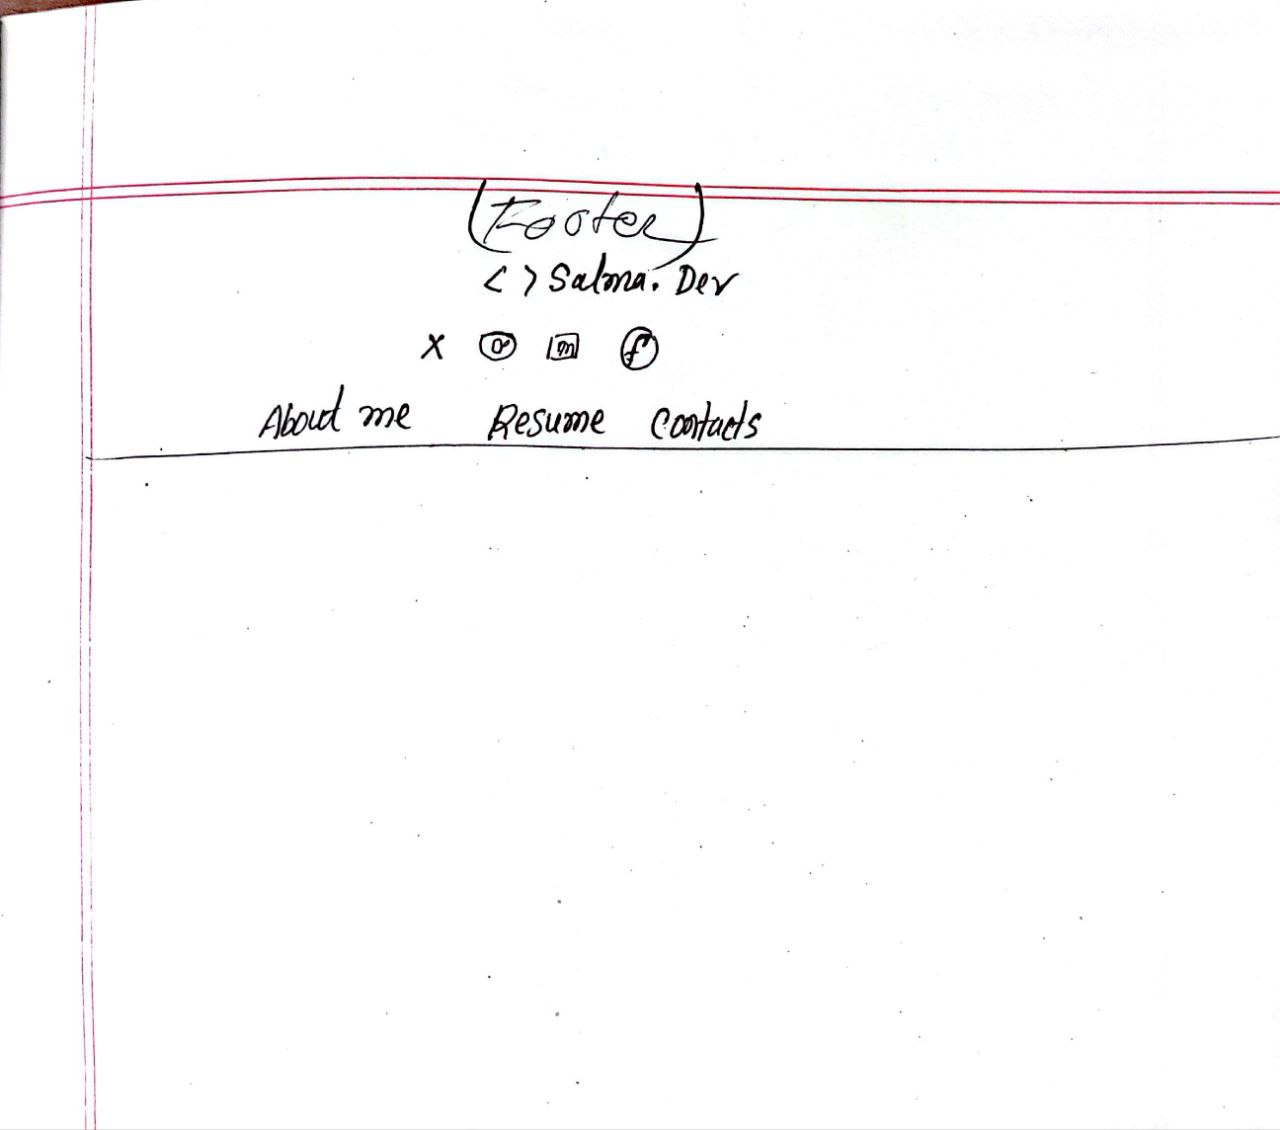 (Footer)
< > Salma. Dev
X in f
About me Resume Contacts